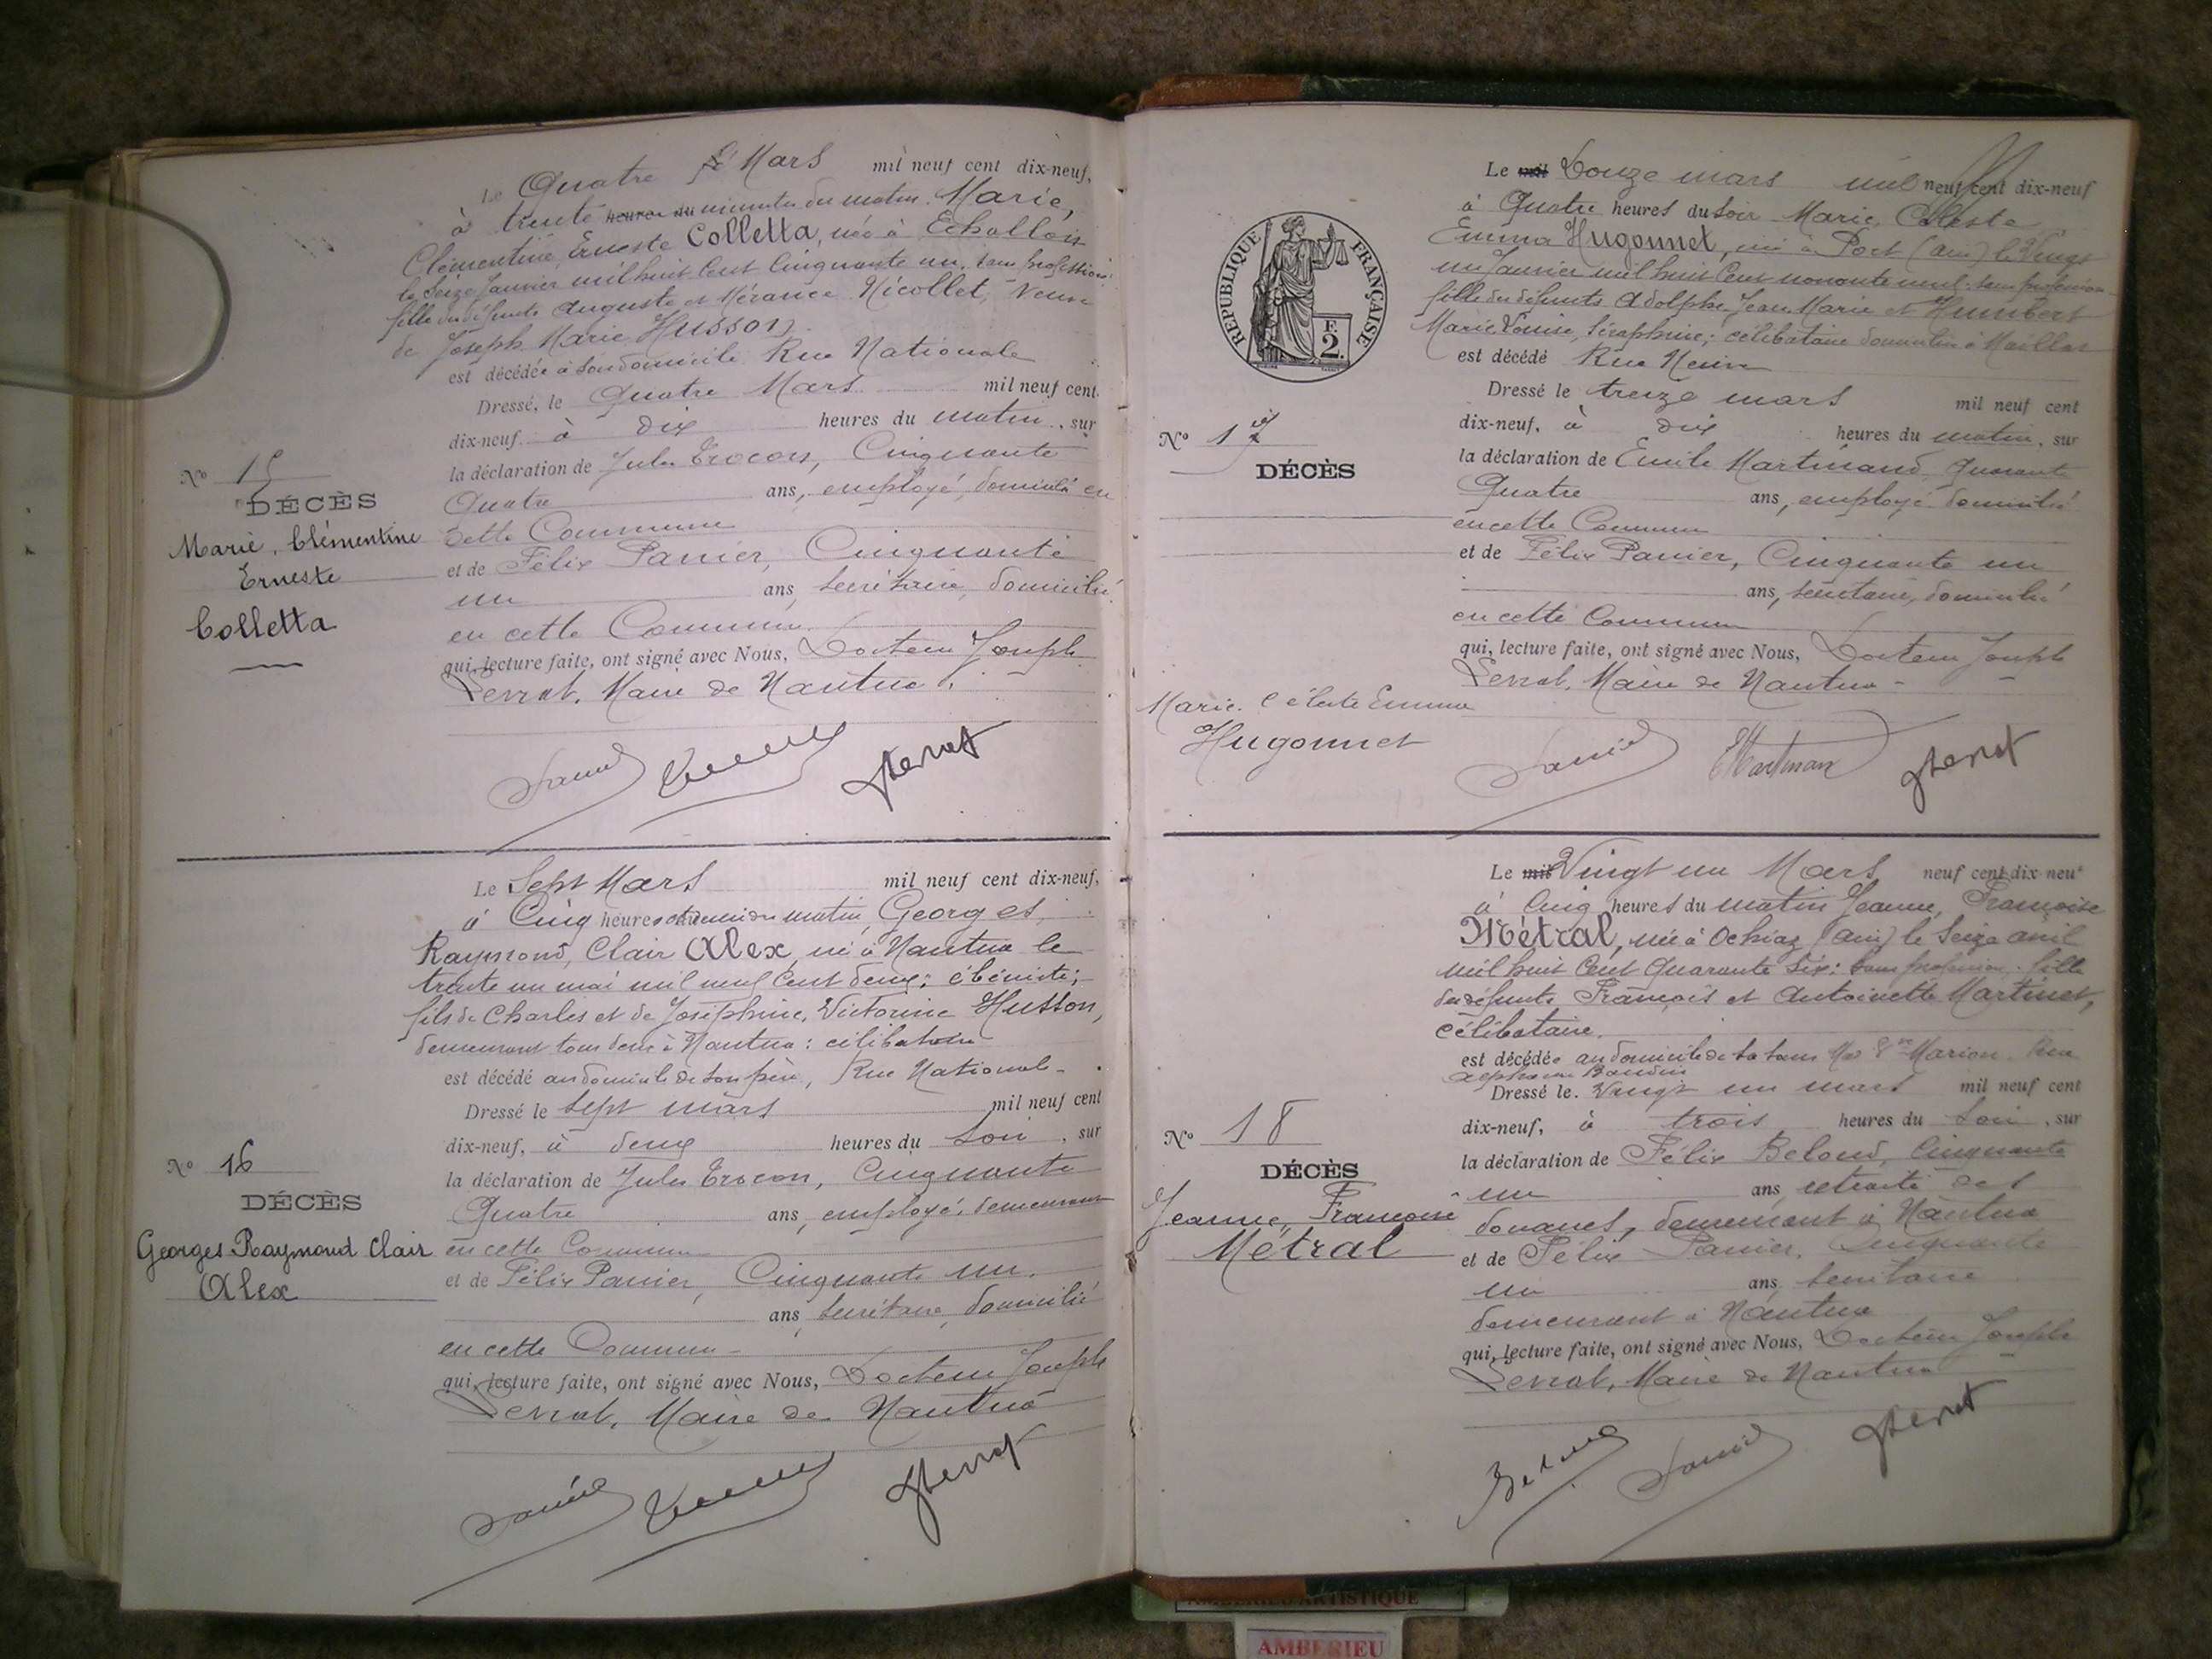 Le Quatre Mars mil neuf cent dix-neuf,
à trente heures du minutes du matin. Marie,
Clémentine, Erneste Colletta, née à Echallon
le Seize Janvier mil huit Cent Cinquante un, sans profession:
fille des défunts Auguste et Mérance Nicollet, Veuve
de Joseph Marie Husson
est décédée à son domicile Rue Nationale
Dressé, le Quatre Mars mil neuf cent
dix-neuf à dix heures du matin, sur
la déclaration de Jules Trocon, Cinquante
Quatre ans, employé, domicilié en
Cette Commune
et de Félix Panier, Cinquante
un ans, secrétaire, domicilié
en cette Commune
qui, lecture faite, ont signé avec Nous, Docteur Joseph
Perrot, Maire de Nantua.
No 15
DÉCÈS
Marie, Clémentine
Erneste
Colletta
Le Sept Mars mil neuf cent dix-neuf,
à Cinq heures du matin, Georges,
Raymond, Clair Alex, né à Nantua le
trente un mai mil neuf Cent deux; ébéniste;
fils de Charles et de Joséphine, Victorine Husson,
demeurant tous deux à Nantua: célibataire
est décédé au domicile de son père, Rue Nationale
Dressé le Sept mars mil neuf cent
dix-neuf, à deux heures du Soir, sur
la déclaration de Jules Trocon, Cinquante
Quatre ans, employé, demeurant
en cette Commune
et de Félix Panier, Cinquante un
ans, secrétaire, domicilié
en cette Commune
qui, lecture faite, ont signé avec Nous, Docteur Joseph
Perrot, Maire de Nantua
No 16
DÉCÈS
Georges Raymond Clair
Alex
Le mil Douze mars mil neuf cent dix-neuf
à Quatre heures du soir Marie, Céleste
Emma Hugonnet, née à Port (Ain) le Vingt
un Janvier mil huit Cent nonante neuf. sans profession
fille des défunts Adolphe, Jean Marie et Humbert
Marie Louise, Séraphine; célibataire domiciliée à Maillat
est décédé Rue Neuve
Dressé le treize mars mil neuf cent
dix-neuf, à dix heures du matin, sur
la déclaration de Emile Martinand, Quarante
Quatre ans, employé domicilié
en cette Commune
et de Félix Panier, Cinquante un
ans, secrétaire, domicilié
en cette Commune
qui, lecture faite, ont signé avec Nous, Docteur Joseph
Perrot, Maire de Nantua
REPUBLIQUE FRANÇAISE
F.
2.
No 17
DÉCÈS
Marie. Céleste Emma
Hugonnet
Le mil Vingt un Mars neuf cent dix neuf
à Cinq heures du matin Jeanne, Françoise
Métral, née à Ochiaz (Ain) le Seize avril
mil huit Cent Quarante Six: sans profession. fille
des défunts François et Antoinette Martinet,
célibataire.
est décédée au domicile de sa sœur Marion. Rue
Alphonse Baudin
Dressé le. Vingt un mars mil neuf cent
dix-neuf, à trois heures du Soir, sur
la déclaration de Félix Beloud, Cinquante
un ans, retraité des
douanes, demeurant à Nantua
et de Félix Panier, Cinquante
un ans, secrétaire
demeurant à Nantua
qui, lecture faite, ont signé avec Nous, Docteur Joseph
Perrot, Maire de Nantua
No 18
DÉCÈS
Jeanne, Françoise
Métral
AMBERIEU ARTISTIQUE
AMBERIEU